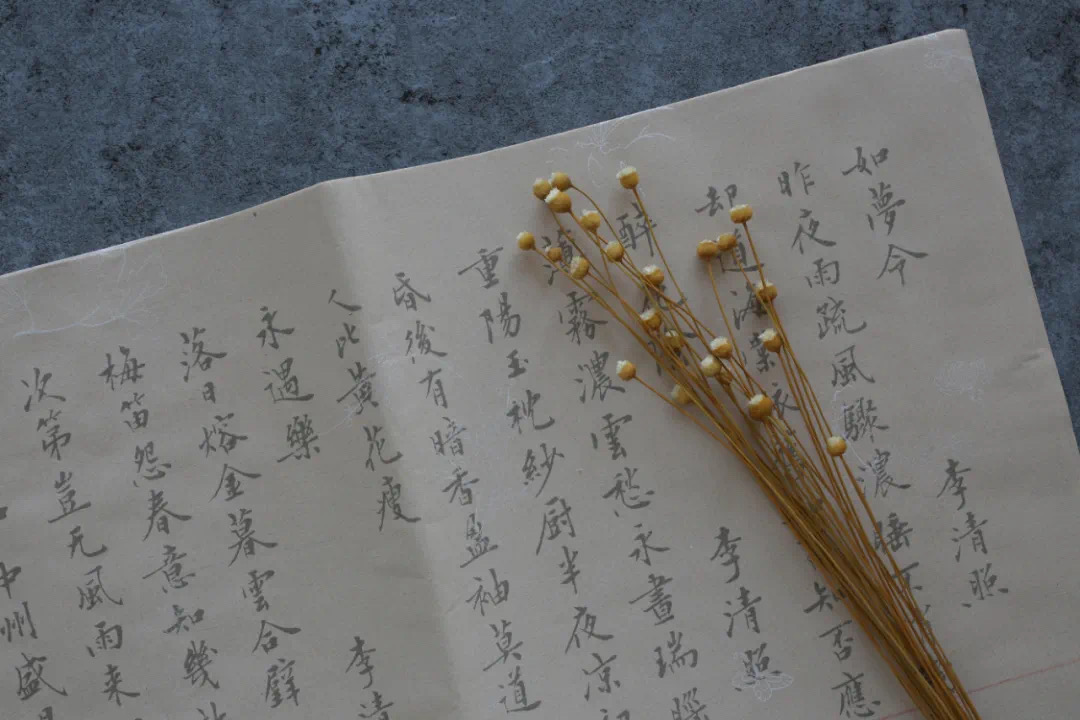 如夢令
李清照
昨夜雨疏風驟濃睡不
却道海棠依
知否應
醉
李清照
薄霧濃雲愁永晝瑞腦
重陽玉枕紗厨半夜凉初
昏後有暗香盈袖莫道
人比黃花瘦
永遇樂
李清
落日熔金暮雲合璧
梅笛怨春意知幾
次第豈无風雨来
中州盛日